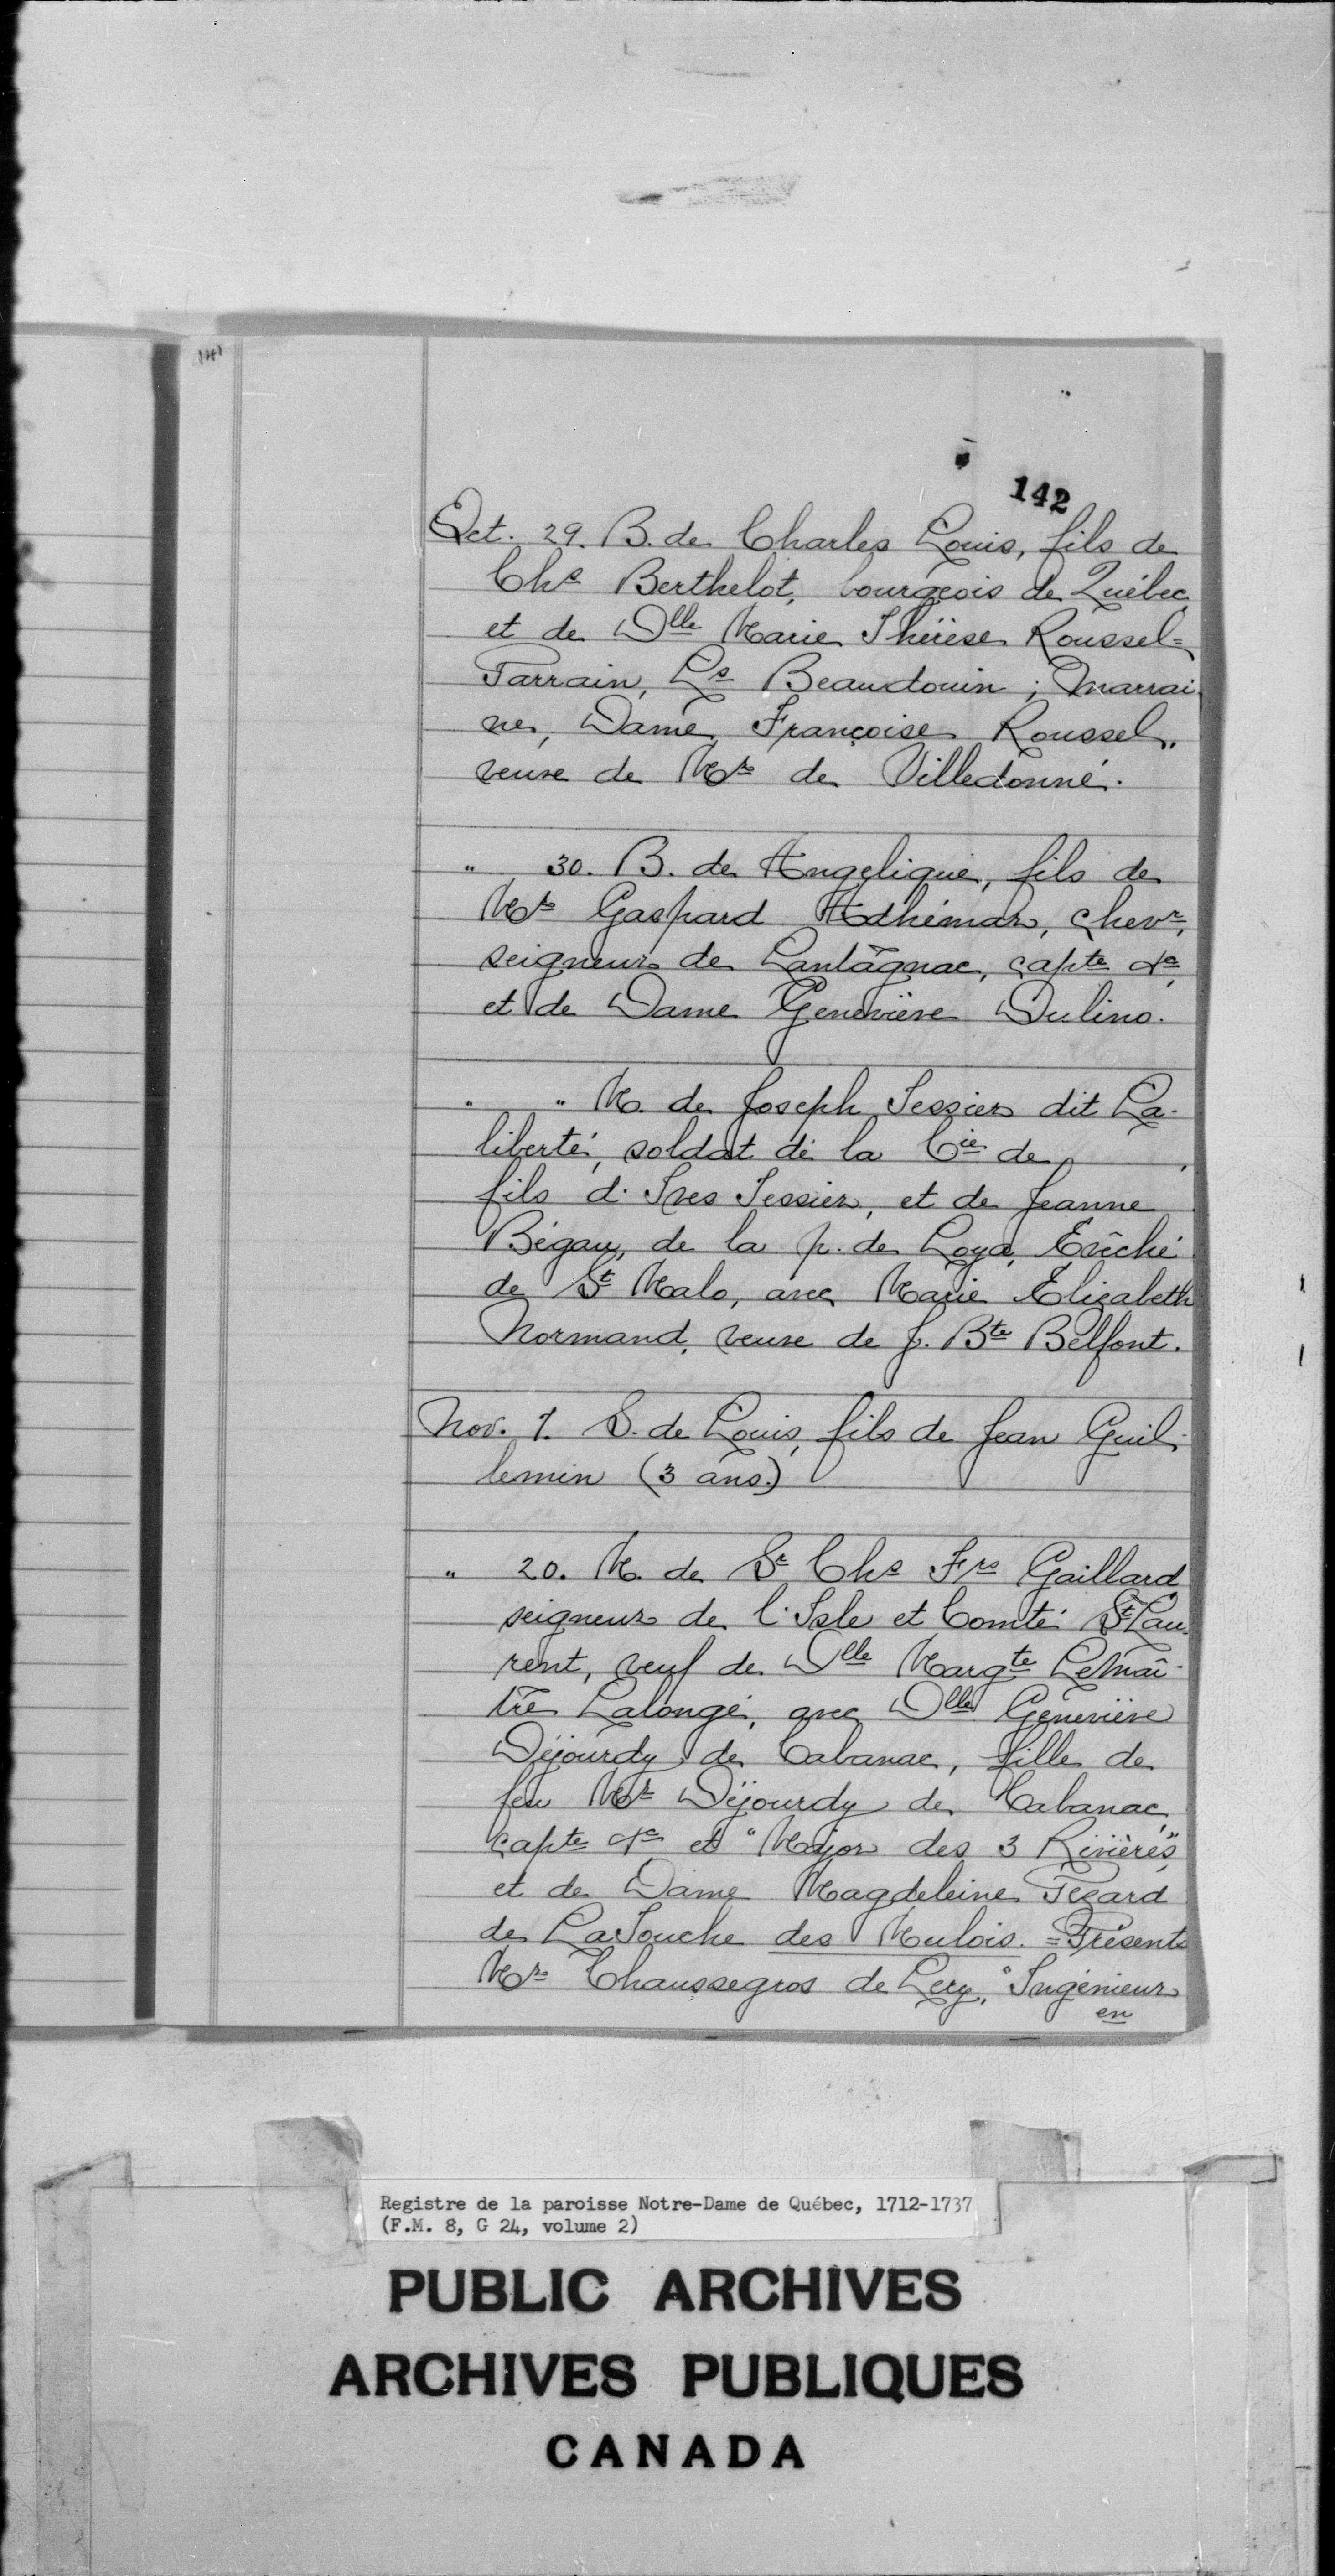 142
Oct. 29. B. de Charles Louis, fils de
Chs Berthelot, bourgeois de Québec,
et de Dlle Marie Thérèse Roussel=
Parrain, Ls Beaudouin ; Marrai-
ne, Dame Françoise Roussel,
veuve de Mr de Villedonné.
" 30. B. de Angelique, fils de
Mr Gaspard Adhémar, chevr,
seigneur de Lantagnac, capte &c,
et de Dame Geneviève Dulino.
" " M. de Joseph Tessier dit La-
liberté, soldat de la Cie de ,
fils d'Ives Tessier, et de Jeanne
Bégau, de la p. de Loya, Evêché
de St Malo, avec Marie Elizabeth
Normand, veuve de J. Bte Belfont.
Nov. 7. S. de Louis, fils de Jean Guil-
lemin (3 ans.)
" 20. M. de Sr Chs Frs Gaillard,
seigneur de l'Isle et Comté St Lau-
rent, veuf de Dlle Margte LeMaî-
tre Lalongé, avec Dlle Geneviève
Déjourdy de Cabanac, fille de
feu Mr Déjourdy de Cabanac,
capte &c et "Major des 3 Rivières",
et de Dame Magdeleine Pezard
de LaTouche des Mulois. = Présents
Mr Chaussegros de Lery, "Ingénieur
en
Registre de la paroisse Notre-Dame de Québec, 1712-1737
(F.M. 8, G 24, volume 2)
PUBLIC ARCHIVES
ARCHIVES PUBLIQUES
CANADA